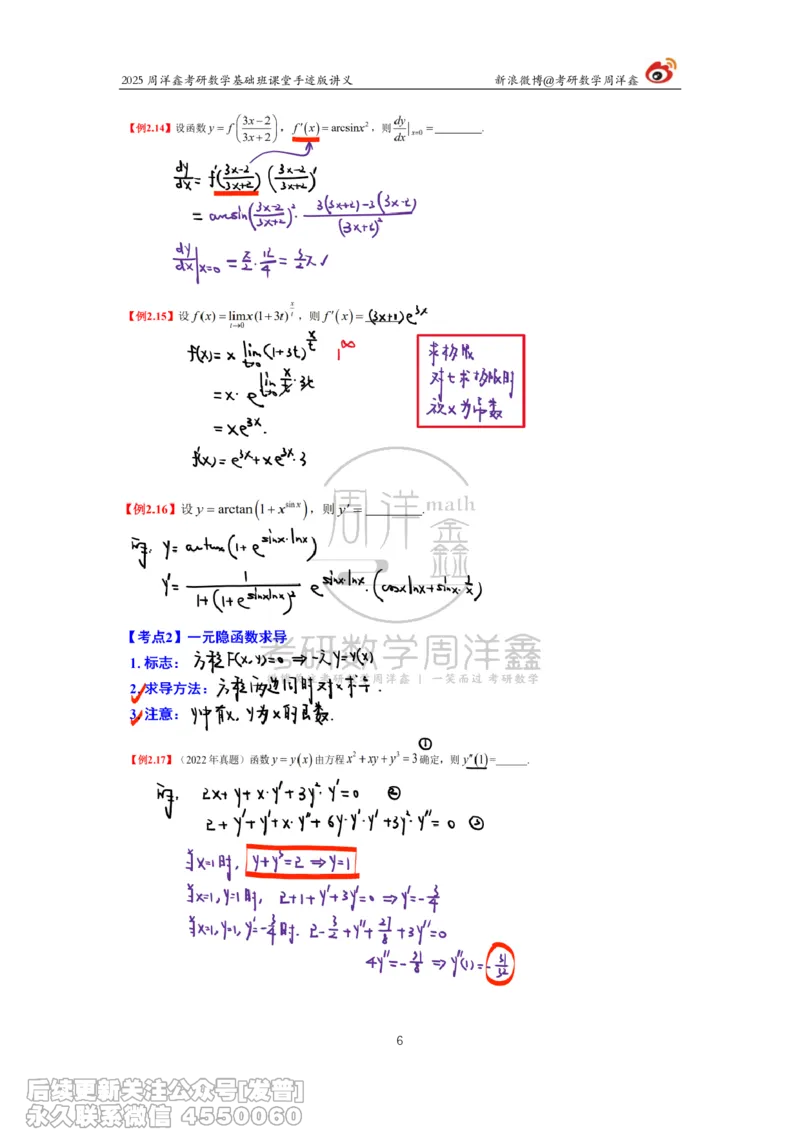 2025 周洋鑫考研数学基础班课堂手迹版讲义 新浪微博@考研数学周洋鑫
【例2.14】设函数 y = f((3x−2)/(3x+2)), f′(x) = arcsinx², 则 dy/dx|x=0 = ________.
dy/dx = f′((3x-2)/(3x+2)) ((3x-2)/(3x+2))′
= arcsin((3x-2)/(3x+2))² · (3(3x+2)-3(3x-2))/(3x+2)²
dy/dx|x=0 = π/2 · 12/4 = 3/2 π ✓
【例2.15】设 f(x) = lim t→0 x(1+3t)^(x/t), 则 f′(x) = (3x+1)e^3x
f(x) = x lim t→0 (1+3t)^(x/t) 1^∞
= x · e^(lim t→0 x/t · 3t)
= xe^3x.
f′(x) = e^3x + xe^3x · 3
求极限
对t求极限时
视x为常数
周洋鑫 math
【例2.16】设 y = arctan(1+x^sinx), 则 y′ = ________.
解: y = arctan(1+e^(sinx·lnx))
y′ = 1/(1+(1+e^(sinxlnx))²) e^(sinx·lnx) · (cosxlnx + sinx·1/x)
【考点2】一元隐函数求导
考研数学周洋鑫
1. 标志: 方程F(x,y)=0 ⇒ 一元y=y(x)
2. 求导方法: 方程两边同时对x求导.
周洋鑫 | 一笑而过 考研数学
3. 注意: y中有x, y为x的函数.
①
【例2.17】(2022年真题) 函数 y = y(x) 由方程 x² + xy + y³ = 3 确定, 则 y″(1) = ______.
解: 2x + y + x·y′ + 3y²·y′ = 0 ②
2 + y′ + y′ + x·y″ + 6y·y′·y′ + 3y²·y″ = 0 ③
当x=1时, y+y³=2 ⇒ y=1
当x=1, y=1时, 2+1+y′+3y′=0 ⇒ y′=-3/4
当x=1, y=1, y′=-3/4时. 2-3/2+y″+27/8+3y″=0
4y″=-31/8 ⇒ y″(1)=-31/32
6
后续更新关注公众号[发普]
永久联系微信 4550060